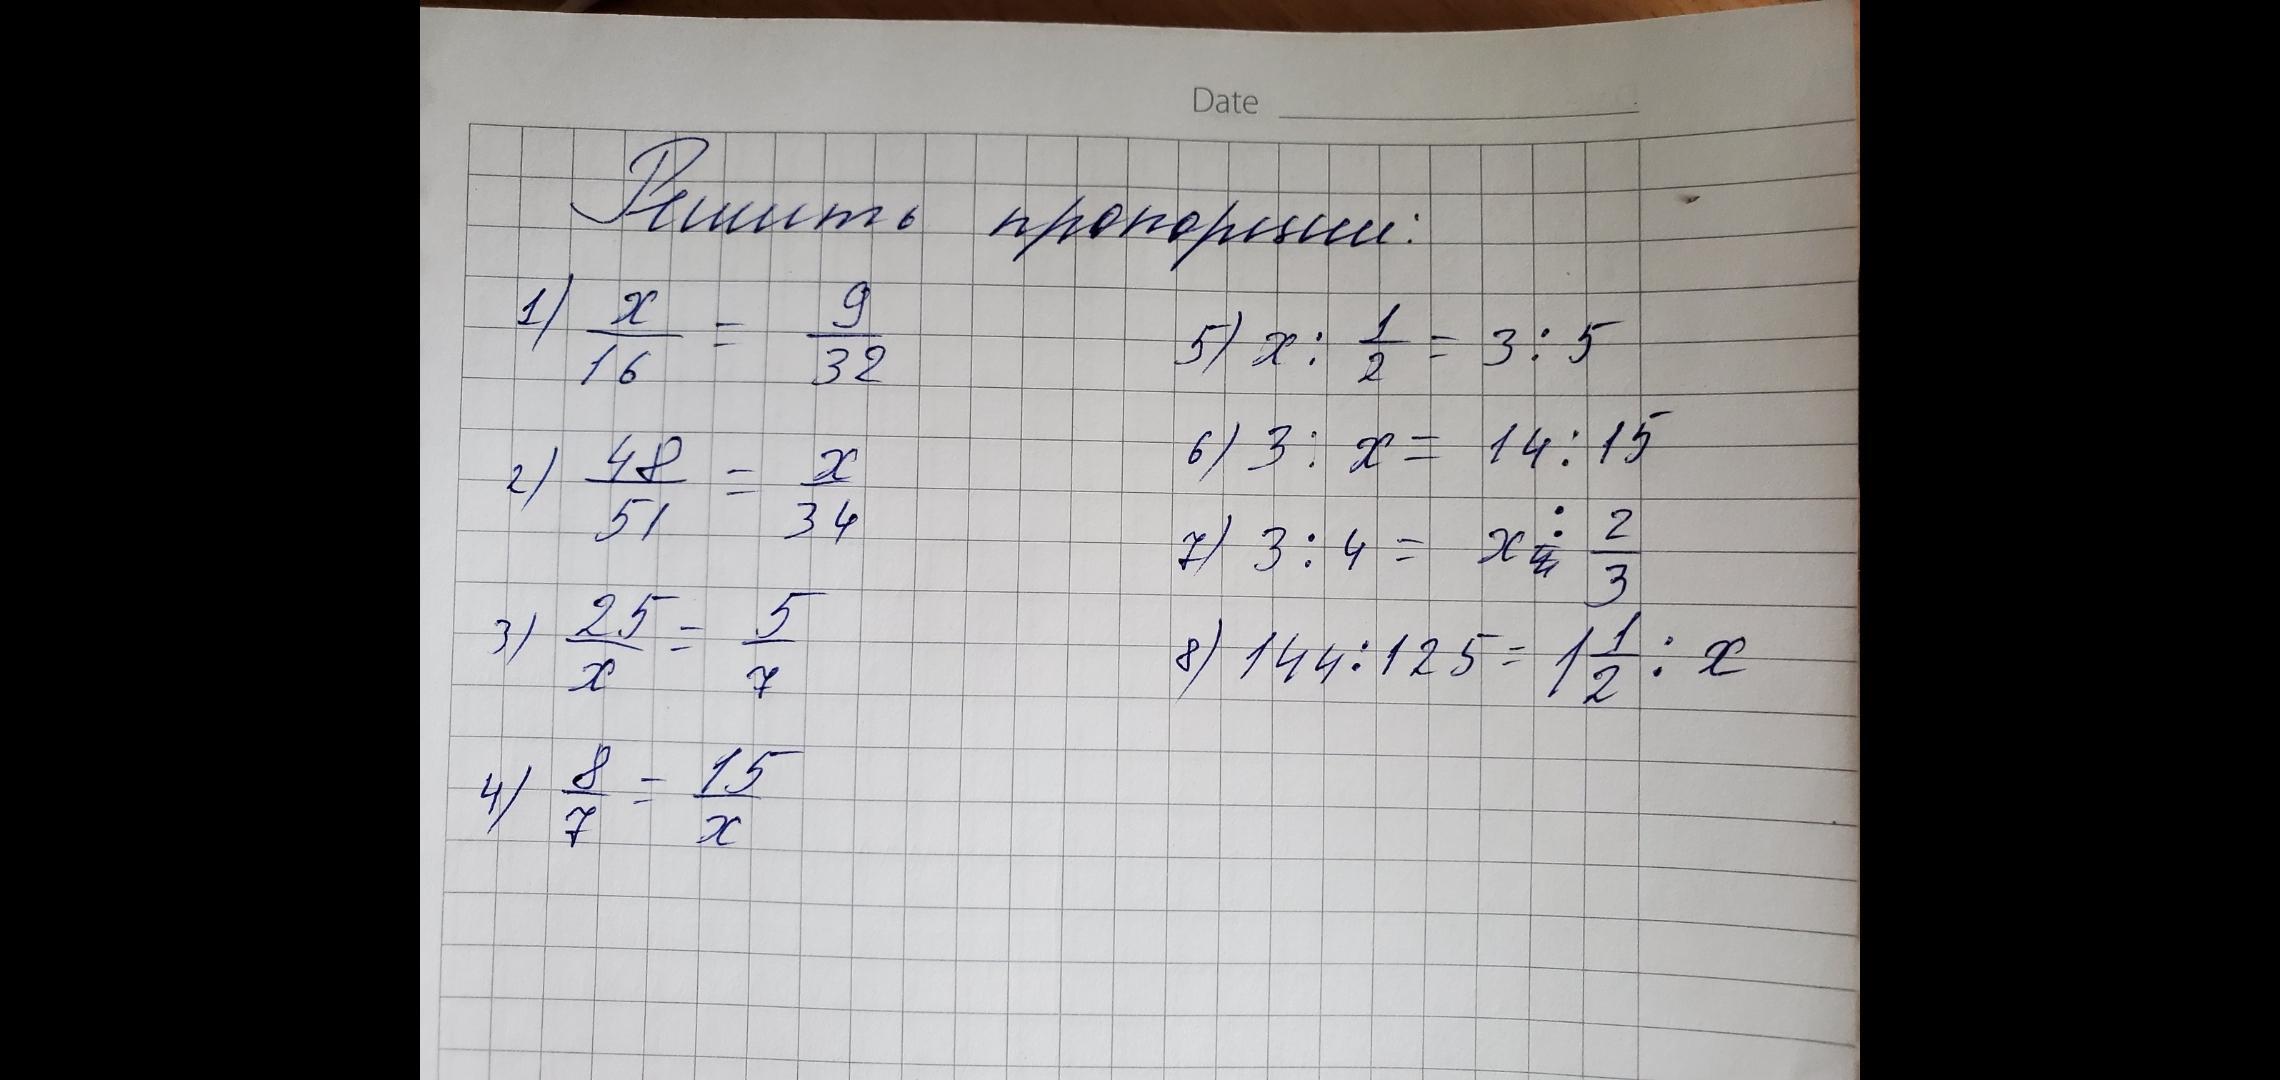 Date
Решить пропорции:
1) x/16 = 9/32
2) 48/51 = x/34
3) 25/x = 5/7
4) 8/7 = 15/x
5) x : 1/2 = 3 : 5
6) 3 : x = 14 : 15
7) 3 : 4 = x : 2/3
8) 144 : 125 = 1 1/2 : x